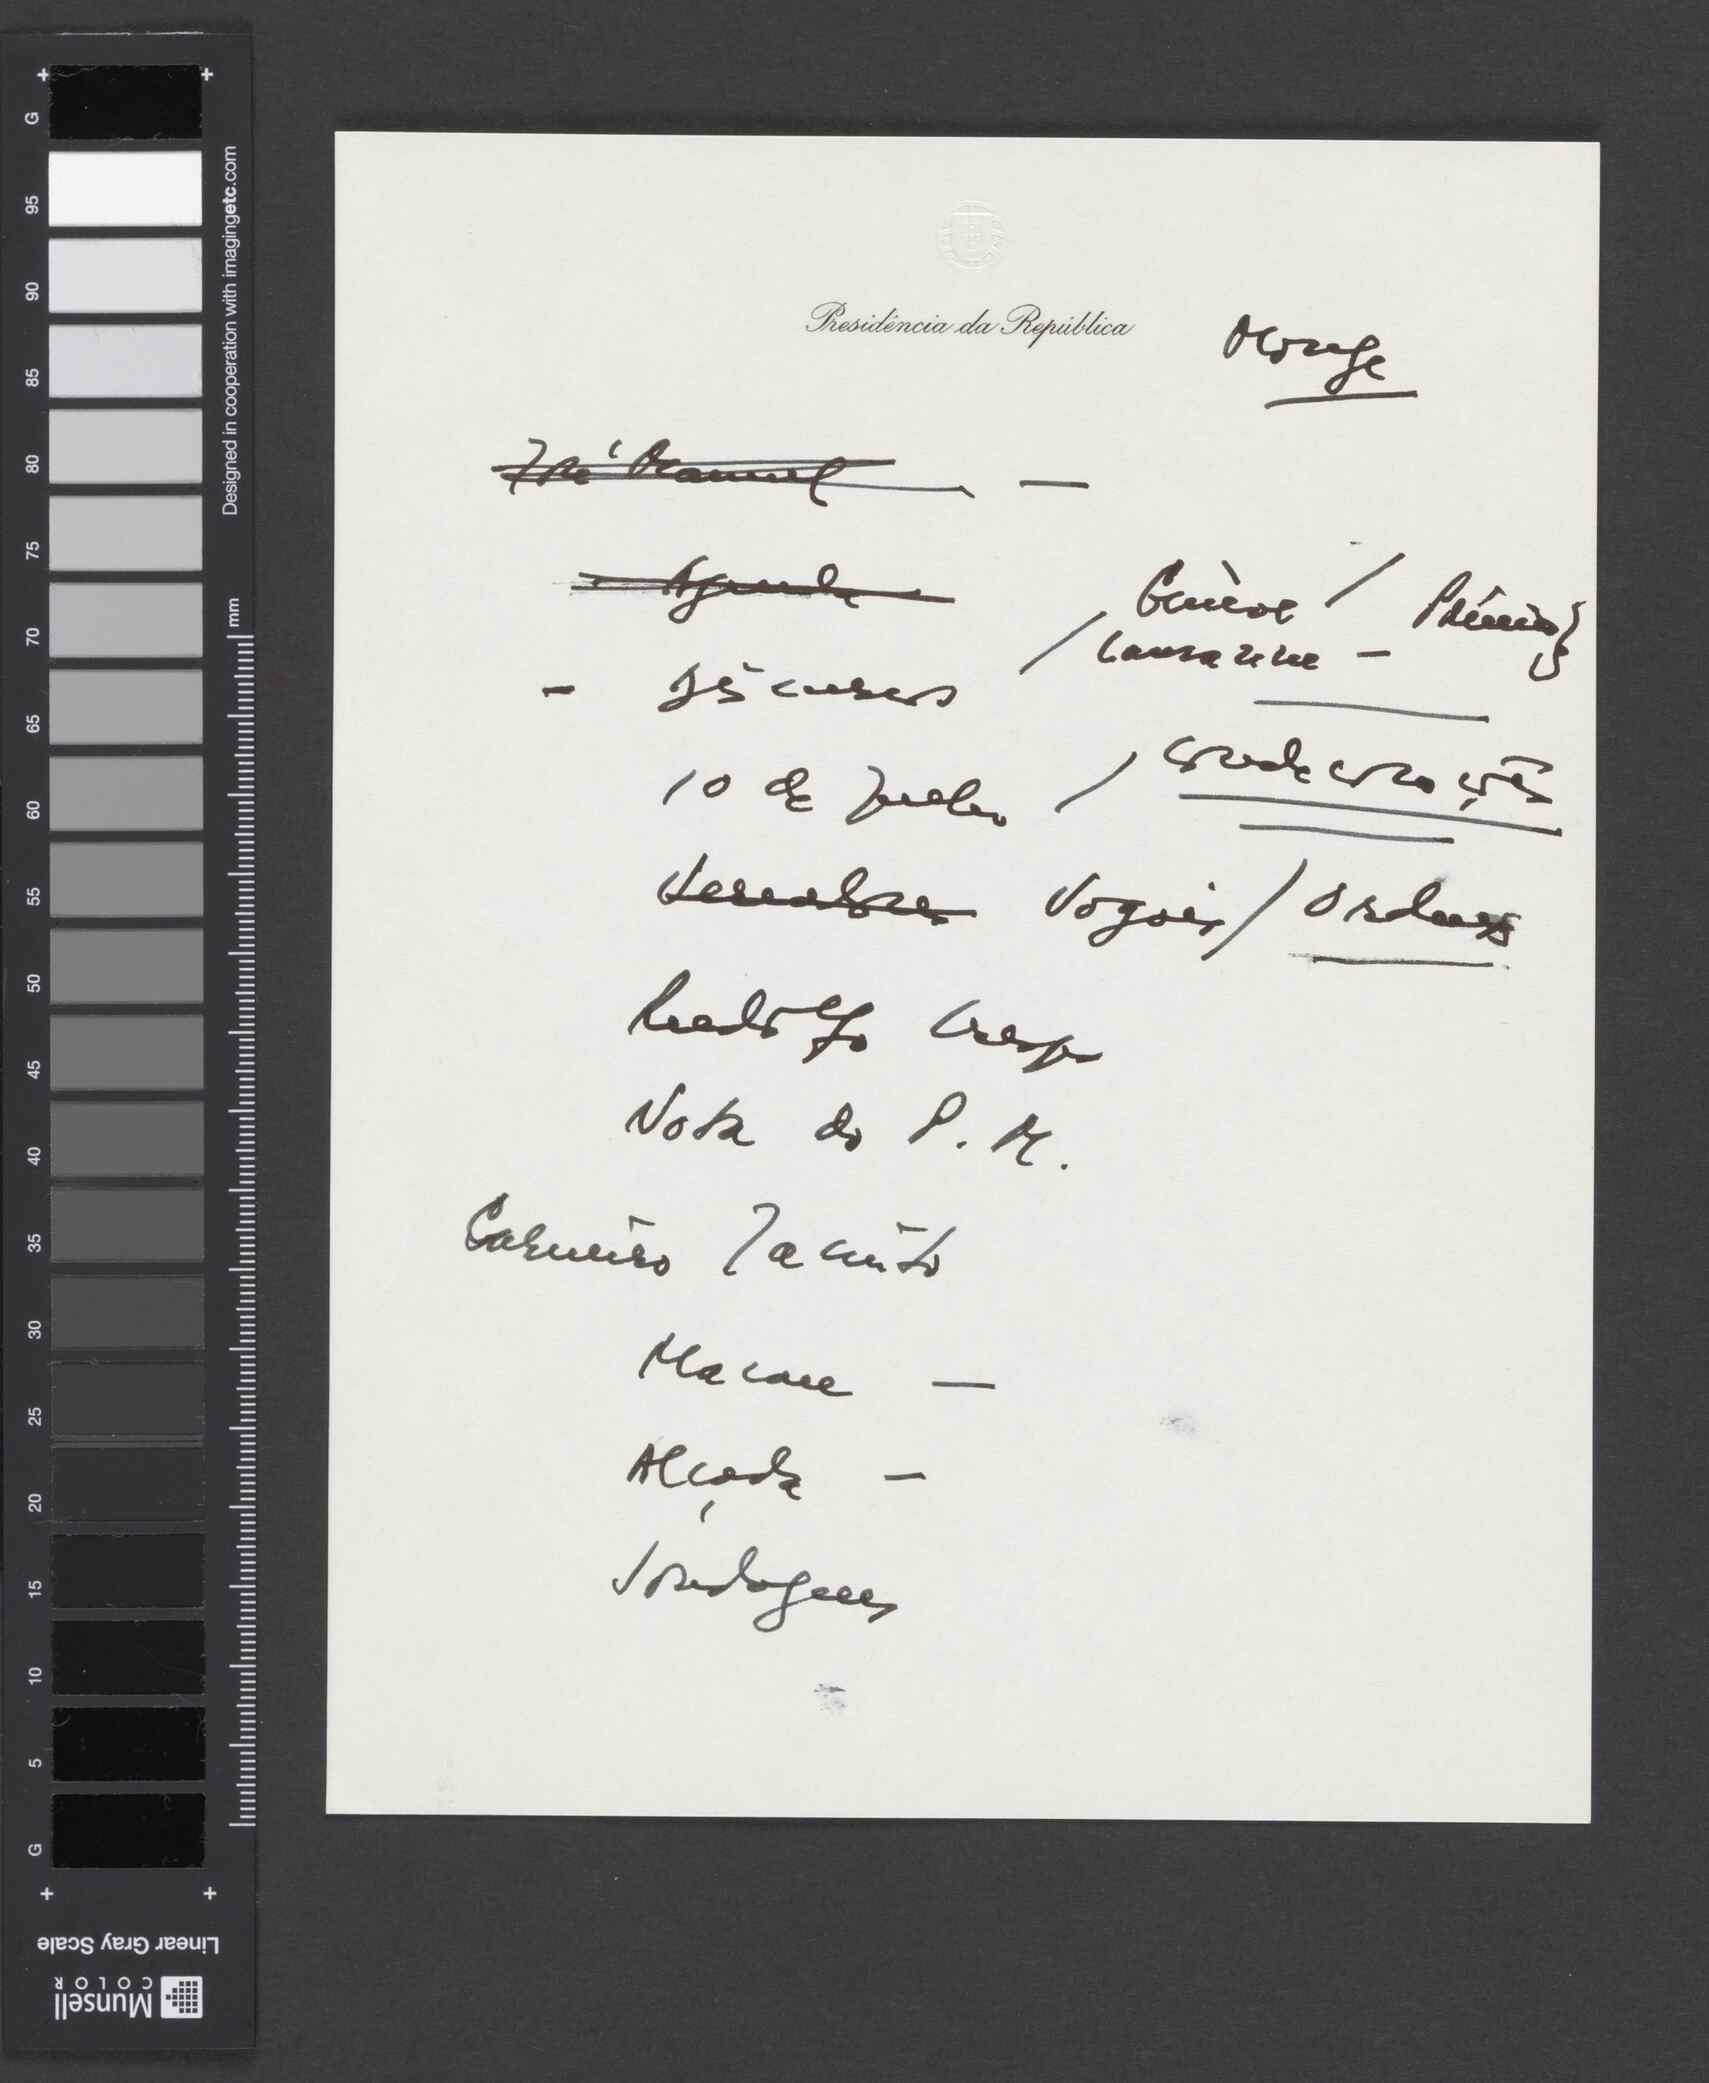 Presidência da República
Monge
José Manuel —
Agenda
Genève / Prémio
/ Lausanne —
- Discursos
10 de Junho / condecorações
Vogais / Ordens
Rudolfo Crespo
Nota do P. M.
Carneiro Jacinto
Macau —
Alçada —
Sondagens
G
95
90
85
80
75
70
65
60
55
50
45
40
35
30
25
20
15
10
5
G
Designed in cooperation with imagingetc.com
mm
Linear Gray Scale
Munsell
COLOR